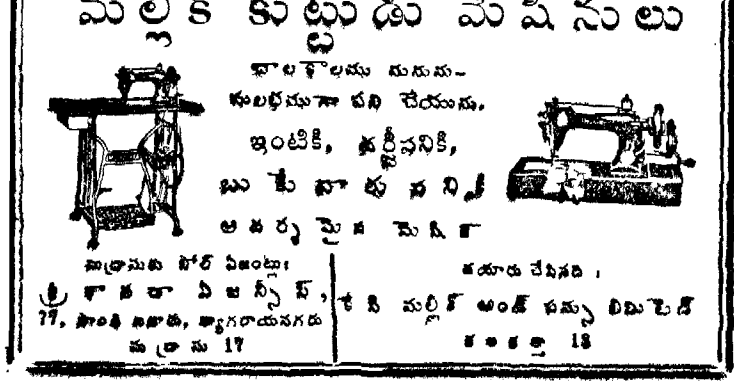 మల్లిక్ కుట్టుడు మెషీనులు
చాలకాలము మనును-
సులభముగా పని చేయును.
ఇంటికి, దర్జీపనికి,
బు కే వా రు ప ని కి
ఆదర్శమైన మెషిన్
మద్రాసుకు సోల్ ఏజంట్లు:
శ్రీ శారదా ఏజన్సీస్,
77, పాండి బజారు, త్యాగరాయనగరు
మద్రాసు 17
తయారు చేసినది :
కె సి మల్లిక్ అండ్ సన్సు లిమిటెడ్
కలకత్తా 13